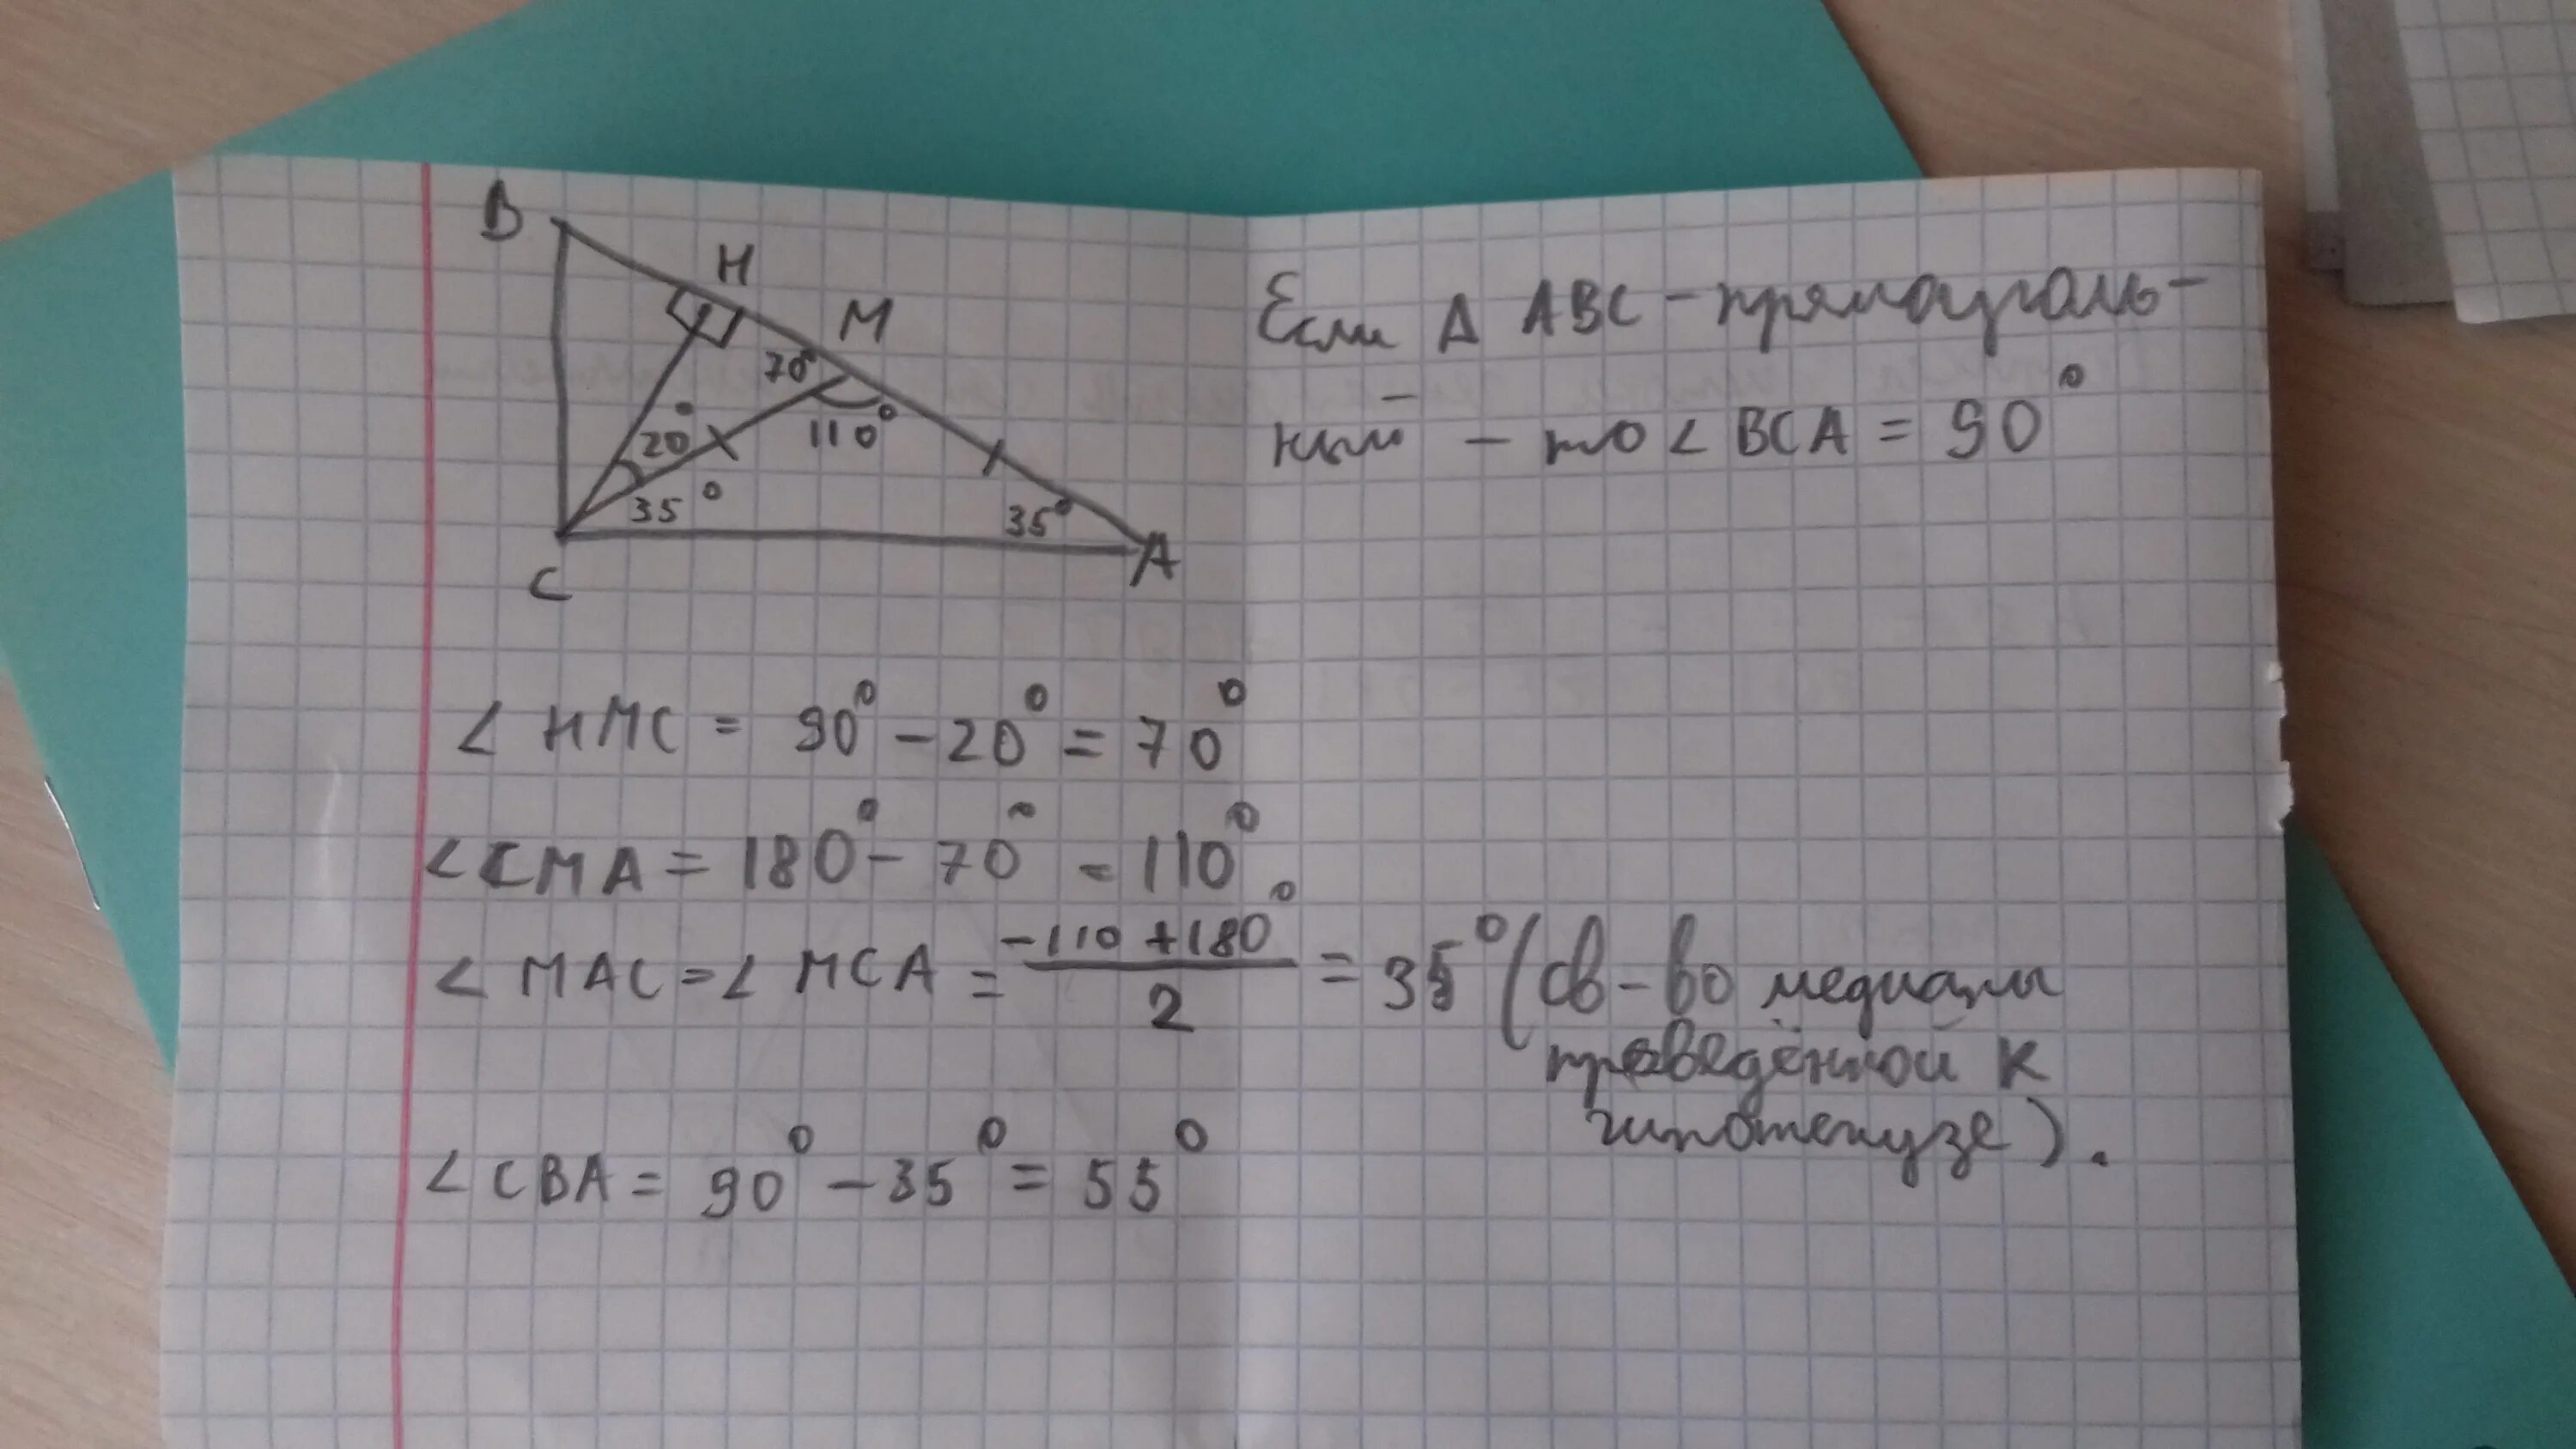 B
H
M
70°
20°
110°
35°
35°
C
A
Если Δ ABC - прямоуголь-
ный - то ∠ BCA = 90°
∠ HMC = 90° - 20° = 70°
∠ CMA = 180° - 70° = 110°
∠ MAC = ∠ MCA = (-110 + 180°)/2 = 35° (св-во медианы
проведённой к
гипотенузе).
∠ CBA = 90° - 35° = 55°